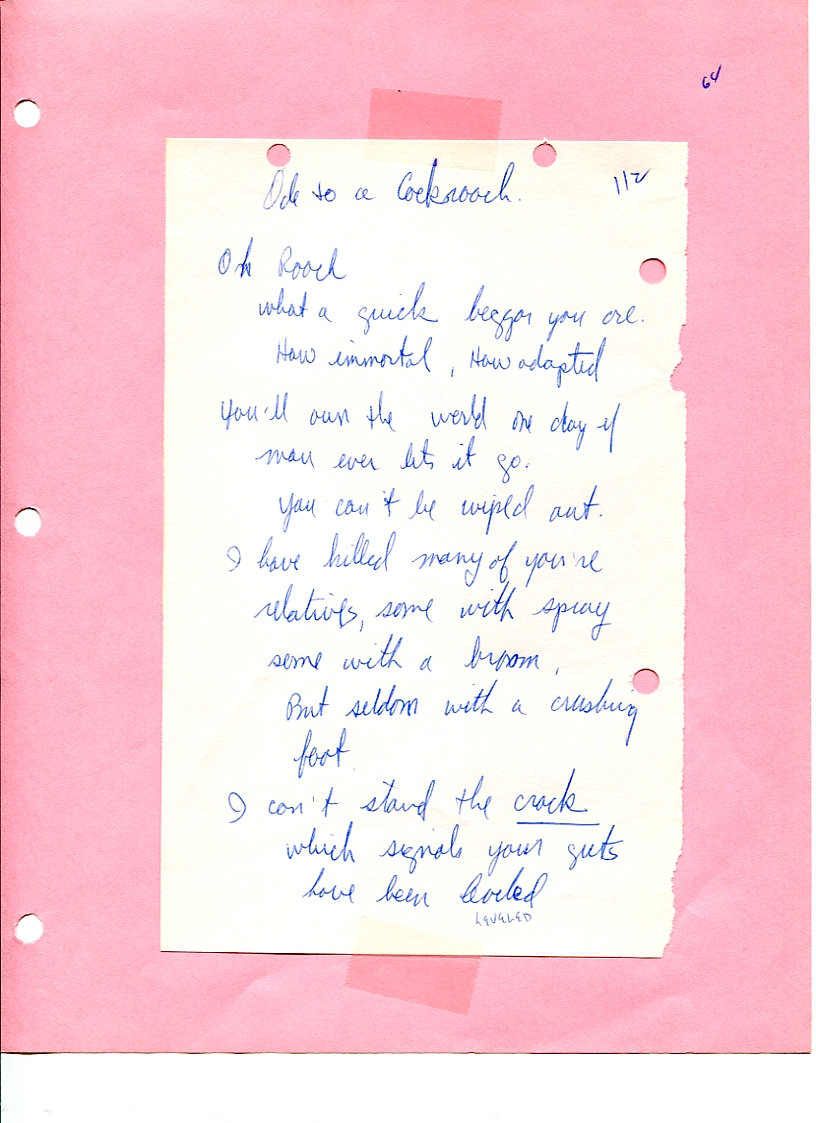 64
112
Ode to a Cockroach.
Oh Roach
what a quick beggar you are.
How immortal, How adapted
You'll own the world one day if
man ever lets it go.
You can't be wiped out.
I have killed many of you're
relatives, some with spray
some with a broom,
But seldom with a crushing
foot.
I can't stand the crack
which signals your guts
have been leveled
LEVELED